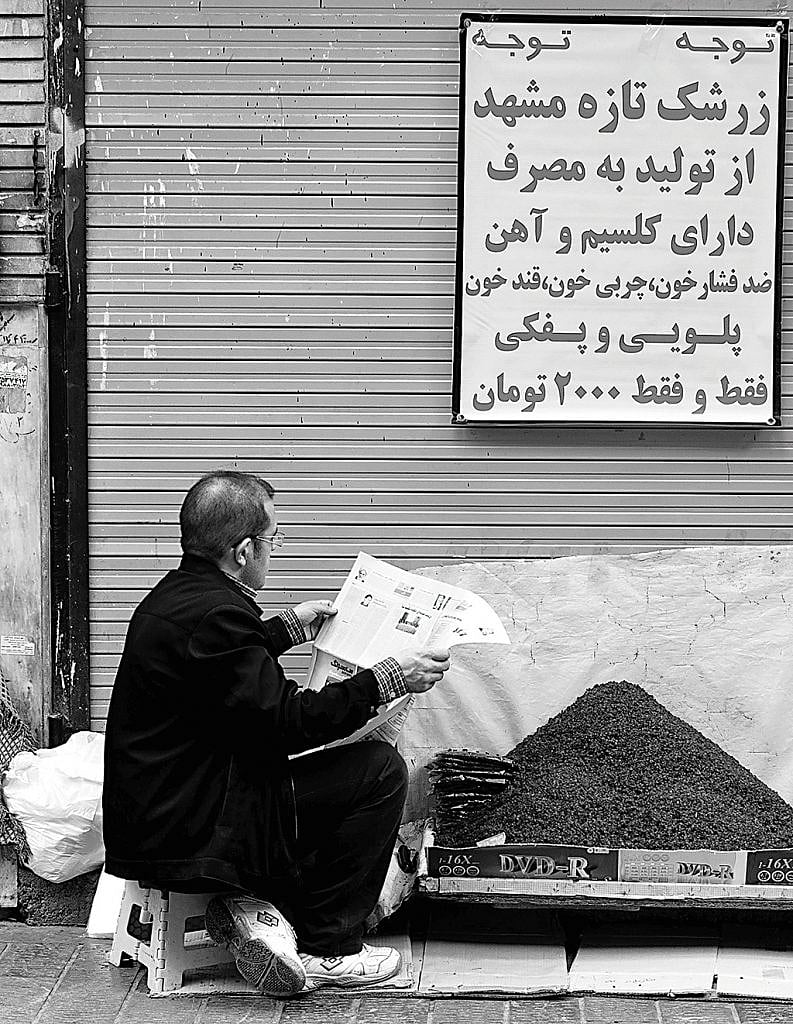 توجه توجه
زرشک تازه مشهد
از تولید به مصرف
دارای کلسیم و آهن
ضد فشار خون،چربی خون،قند خون
پلویی و پفکی
فقط و فقط ۲۰۰۰ تومان
1-16X DVD-R DVD-R 1-16X